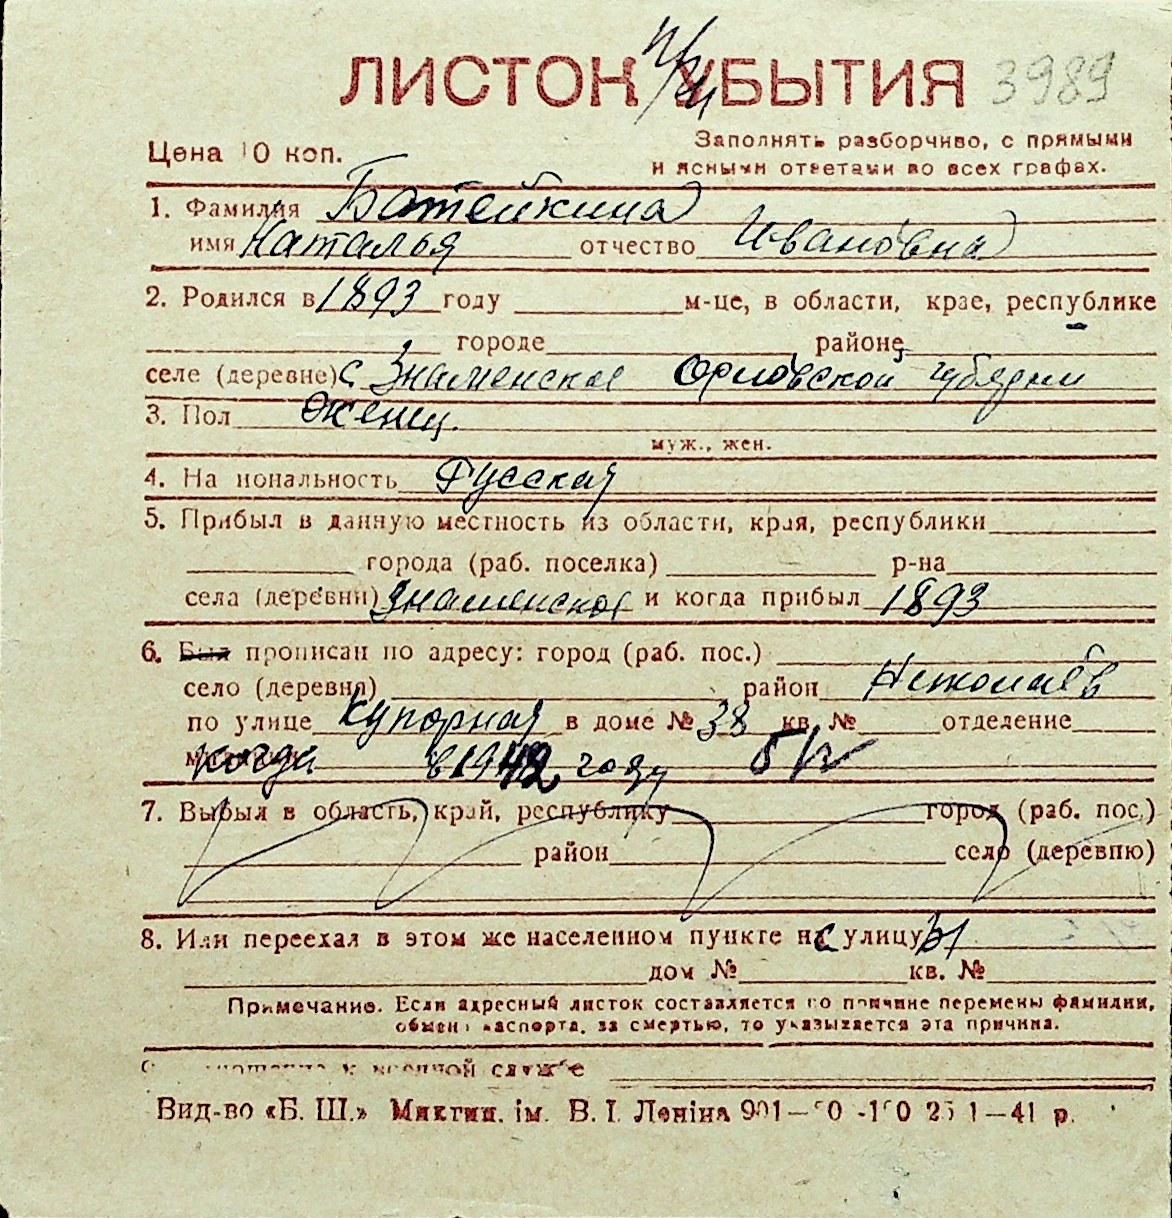 ЛИСТОК УБЫТИЯ 3989
Цена 10 коп.
Заполнять разборчиво, с прямыми
и ясными ответами во всех графах.
1. Фамилия Батейкина
имя Наталья отчество Ивановна
2. Родился в 1893 году м-це, в области, крае, республике
городе районе
селе (деревне) с Знаменское Орловской губернии
3. Пол женщ.
муж., жен.
4. Национальность Русская
5. Прибыл в данную местность из области, края, республики
города (раб. поселка) р-на
села (деревни) Знаменское и когда прибыл 1893
6. Был прописан по адресу: город (раб. пос.)
село (деревня) район Николаев
по улице Купорная в доме № 38 кв. № отделение
когда в 1942 году
7. Выбыл в область, край, республику город (раб. пос.)
район село (деревню)
8. Или переехал в этом же населенном пункте на улицу
дом № кв. №
Примечание. Если адресный листок составляется по причине перемены фамилии,
обмена паспорта, за смертью, то указывается эта причина.
военной службе
Вид-во «Б. Ш.» Микгип. ім. В. І. Леніна 1—41 р.